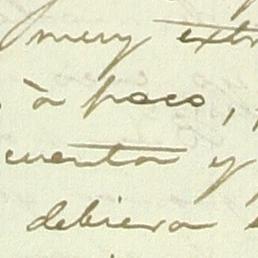 muy extr
à poco,
cuenta y
debiera